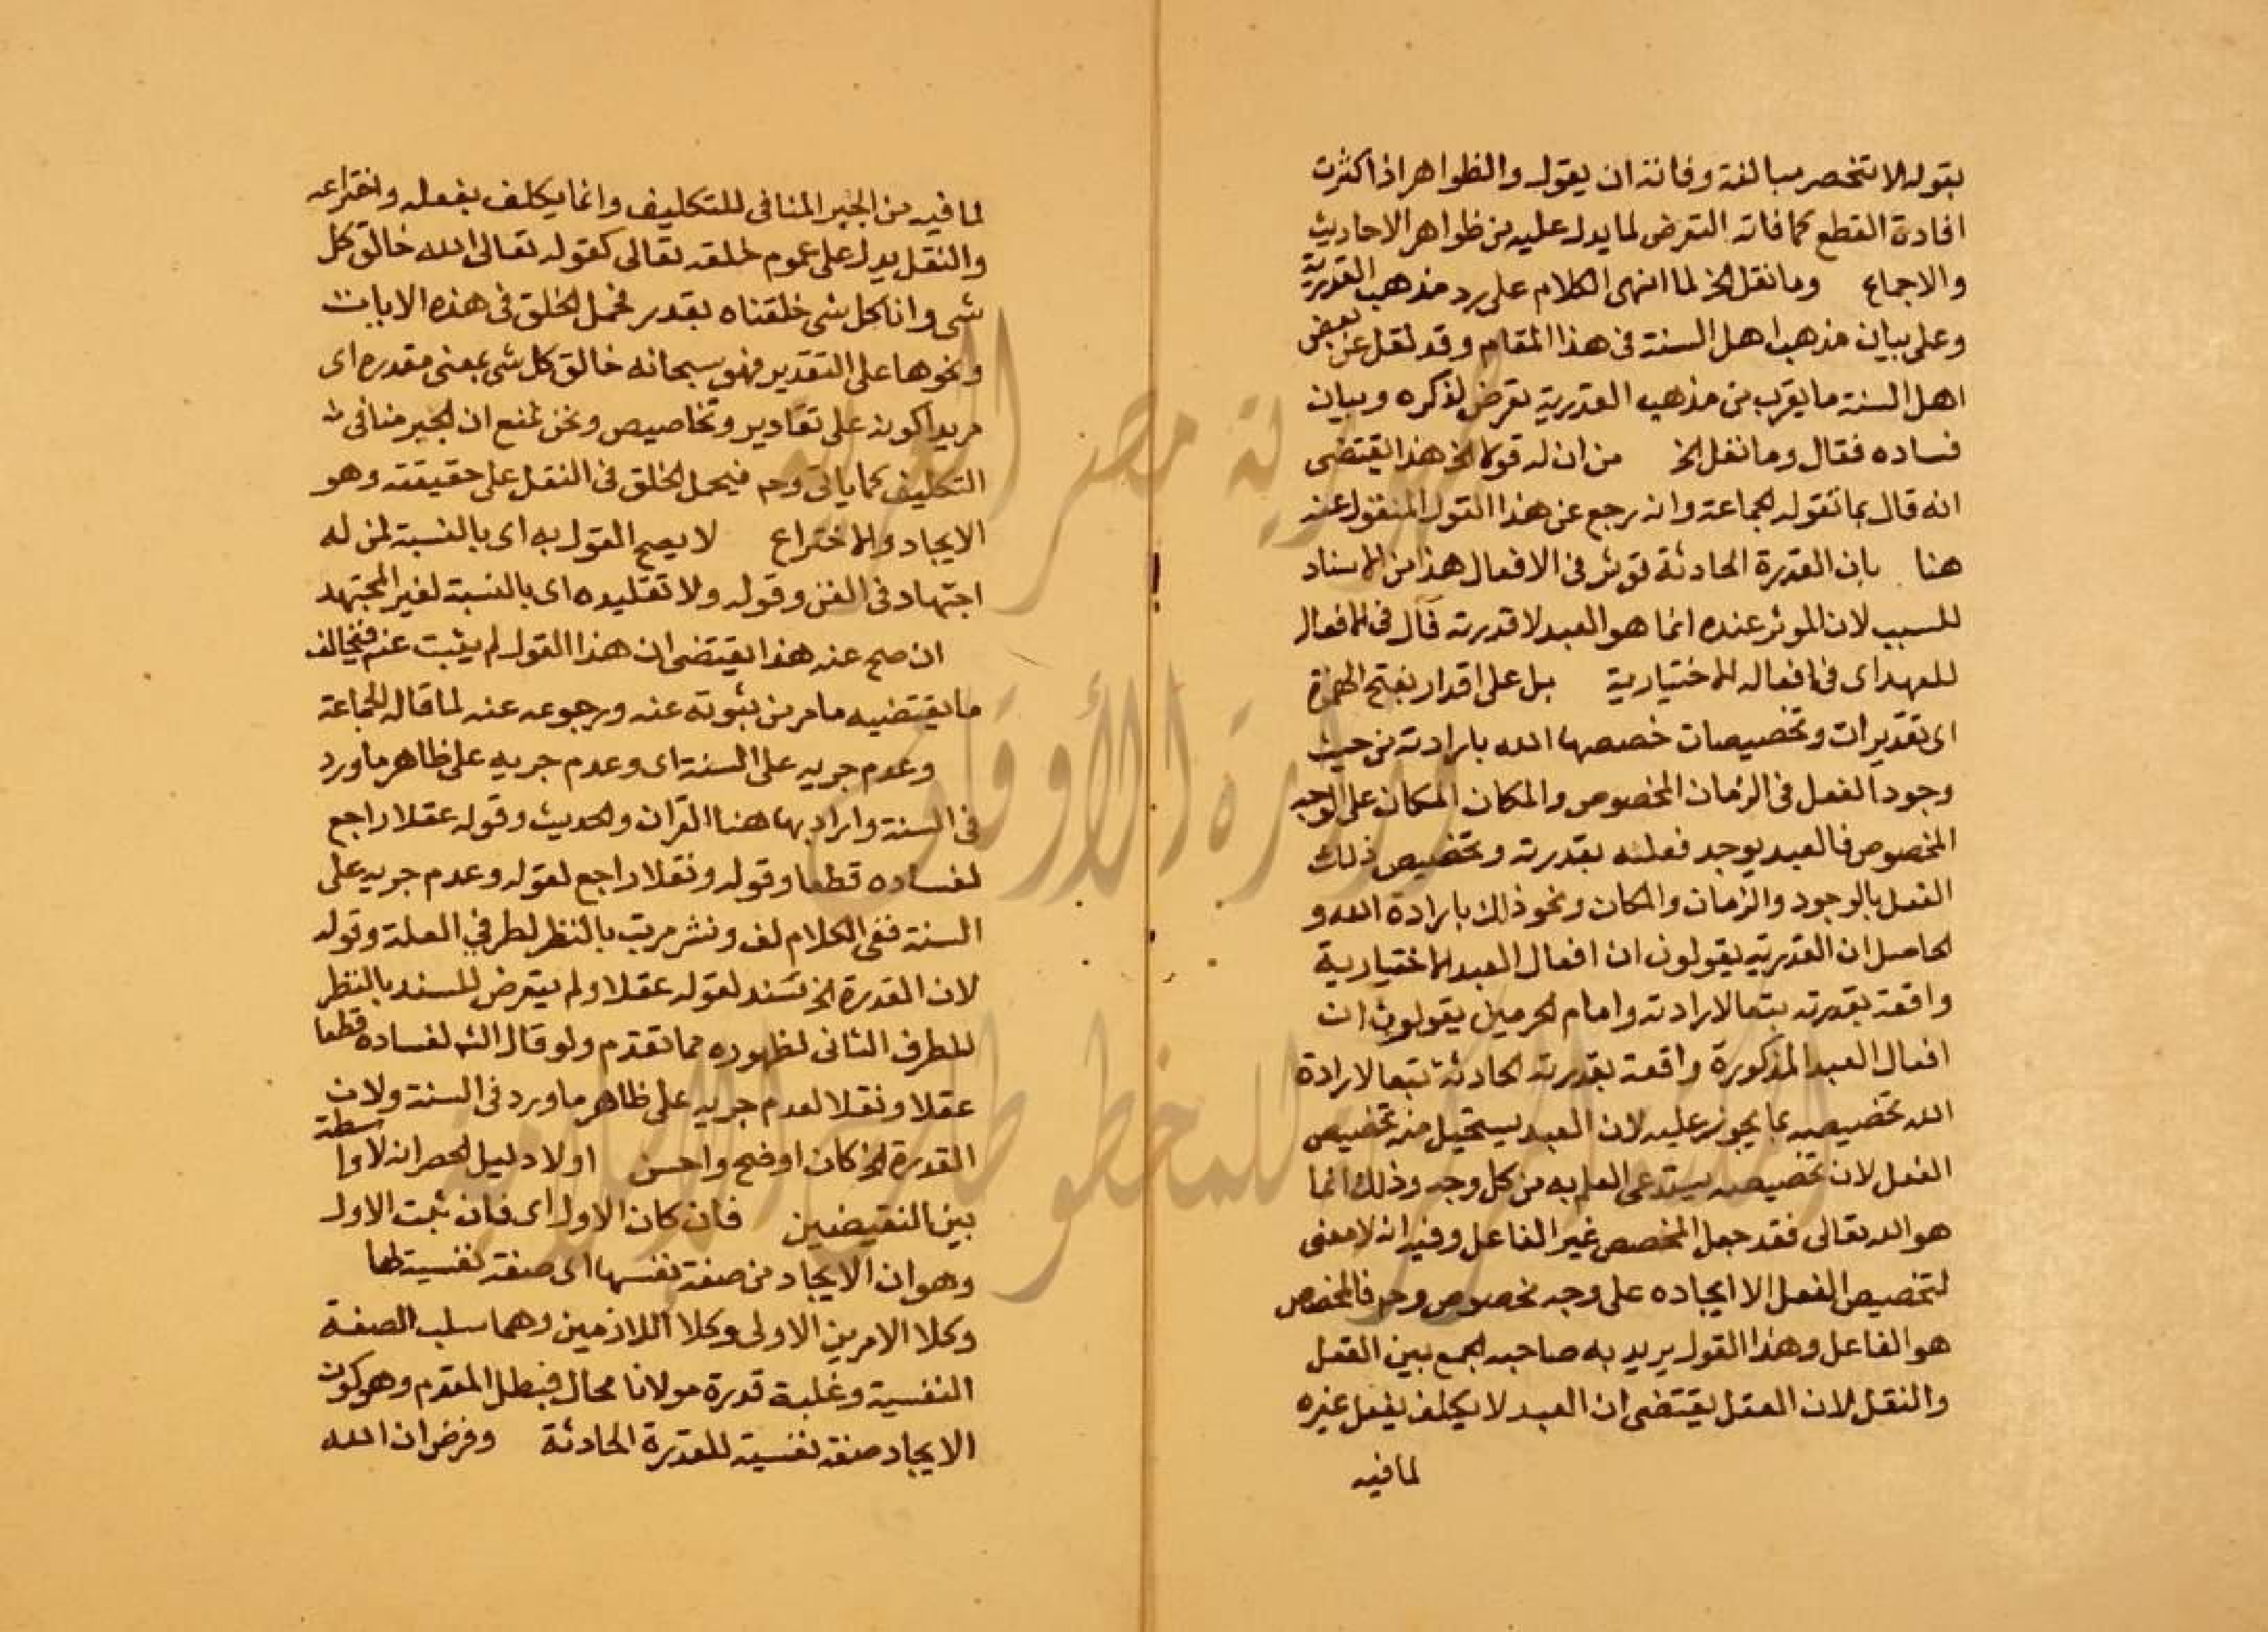 بقوله لا تنحصر مبالغة وفاته ان يقول والظواهر اذا كثرت
افادت القطع كما فاته التعرض لما يدل عليه من ظواهر الاحاديث
والاجماع وما نقل الخ لما انهى الكلام على رد مذهب القدرية
وعلى بيان مذهب اهل السنة فى هذا المقام وقد نقل عن بعض
اهل السنة ما يقرب من مذهب القدرية تعرض لذكره وبيان
فساده فقال وما نقل الخ من ان له قولا الخ هذا يقتضى
انه قال بما تقوله الجماعة وانه رجع عن هذا القول المنقول عنه
هنا بان القدرة الحادثة توثر فى الافعال هذا من الاسناد
للسبب لان الموثر عنده انما هو العبد لا قدرته قال فى الافعال
للعهد اى فى افعاله الاختيارية بل على اقدار بفتح الهمزة
اى تقديرات وتخصيصات خصصها الله بارادته من حيث
وجود الفعل فى الزمان المخصوص والمكان المكان على الوجه
المخصوص فالعبد يوجد فعله بقدرته وتخصيص ذلك
الفعل بالوجود والزمان والمكان ونحو ذلك بارادة الله و
الحاصل ان القدرية يقولون ان افعال العبد الاختيارية
واقعة بقدرته تبعا لارادته وامام الحرمين يقولون ان
افعال العبد المذكورة واقعة بقدرته الحادثة تبعا لارادة
الله تخصيصه بما يجوز عليه لان العبد يستحيل منه تخصيص
الفعل لان تخصيصه يستدعى العلم به من كل وجه وذلك انما
هو الله تعالى فقد جعل المخصص غير الفاعل وفيه انه لا معنى
لتخصيص الفعل الا ايجاده على وجه مخصوص وح فالمخصص
هو الفاعل وهذا القول يريد به صاحبه الجمع بين العقل
والنقل لان العقل يقتضى ان العبد لا يكلف بفعل غيره
لما فيه
لما فيه من الجبر المنافى للتكليف وانما يكلف بفعله واختراعه
والنقل يدل على عموم خلقه تعالى كقوله تعالى الله خالق كل
شى وانا كل شى خلقناه بقدر فحمل الخلق فى هذه الايات
ونحوها على التقدير فهو سبحانه خالق كل شى بمعنى مقدره اى
مريدا كونه على تقادير وتخاصيص ونحن نمنع ان الجبر منافى
التكليف كما ياتى وح فيحمل الخلق فى النقل على حقيقته وهو
الايجاد والاختراع لا يصح القول به اى بالنسبة لمن له
اجتهاد فى الفن وقوله ولا تقليده اى بالنسبة لغير المجتهد
ان صح عنه هذا يقتضى ان هذا القول لم يثبت عنه فيخالف
ما يقتضيه ما مر من ثبوته عنه ورجوعه عنه لما قاله الجماعة
وعدم جريه على السنة اى وعدم جريه على ظاهر ما ورد
فى السنة واراد بها هنا القران والحديث وقوله عقلا راجع
لفساده قطعا وقوله ونقلا راجع لقوله وعدم جريه على
السنة ففى الكلام لف ونشر مرتب بالنظر لطرفي العلة وقوله
لان القدرة الخ سند لقوله عقلا ولم يتعرض للسند بالنظر
للطرف الثانى لظهوره مما تقدم ولو قال الش لفساده قطعا
عقلا ونقلا لعدم جريه على ظاهر ما ورد فى السنة ولان
القدرة الخ كان اوضح واحسن اولا دليل الحصر انه لا واسطة
بين النقيضين فان كان الاول اى فان ثبت الاول
وهو ان الايجاد من صفة نفسها اى صفة نفسية لها
وكلا الامرين الاولى وكلا اللازمين وهما سلب الصفة
النفسية وغلبة قدرة مولانا محال فبطل المقدم وهو كون
الايجاد صفة نفسية للقدرة الحادثة وفرض ان الله